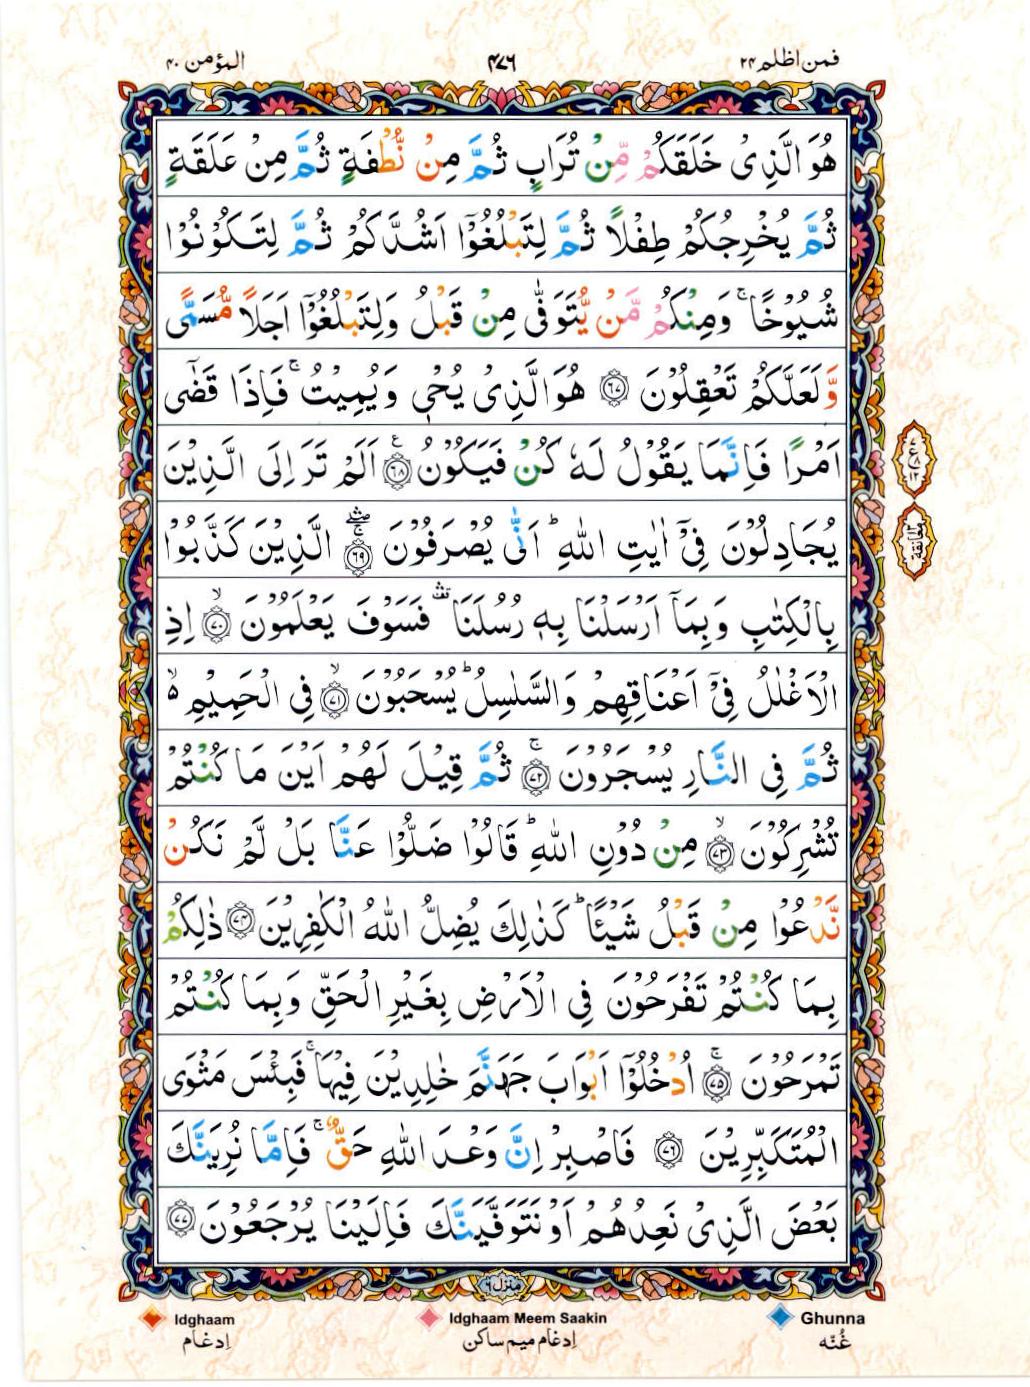 المؤمن ۴۰
۴۷۶
فمن اظلم ۲۴
هُوَ الَّذِىْ خَلَقَكُمْ مِّنْ تُرَابٍ ثُمَّ مِنْ نُّطْفَةٍ ثُمَّ مِنْ عَلَقَةٍ
ثُمَّ يُخْرِجُكُمْ طِفْلًا ثُمَّ لِتَبْلُغُوْۤا اَشُدَّكُمْ ثُمَّ لِتَكُوْنُوْا
شُيُوْخًا ۚ وَمِنْكُمْ مَّنْ يُّتَوَفّٰى مِنْ قَبْلُ وَلِتَبْلُغُوْۤا اَجَلًا مُّسَمًّى
وَّلَعَلَّكُمْ تَعْقِلُوْنَ ﴿۶۷﴾ هُوَ الَّذِىْ يُحْىٖ وَيُمِيْتُ ۚ فَاِذَا قَضٰٓى
اَمْرًا فَاِنَّمَا يَقُوْلُ لَهٗ كُنْ فَيَكُوْنُ ﴿۶۸﴾ ع اَلَمْ تَرَ اِلَى الَّذِيْنَ
يُجَادِلُوْنَ فِىْۤ اٰيٰتِ اللّٰهِ ؕ اَنّٰى يُصْرَفُوْنَ ﴿۶۹﴾ ۛۚ الَّذِيْنَ كَذَّبُوْا
بِالْكِتٰبِ وَبِمَاۤ اَرْسَلْنَا بِهٖ رُسُلَنَا ۛ فَسَوْفَ يَعْلَمُوْنَ ﴿۷۰﴾ ۙ اِذِ
الْاَغْلٰلُ فِىْۤ اَعْنَاقِهِمْ وَالسَّلٰسِلُ ؕ يُسْحَبُوْنَ ﴿۷۱﴾ ۙ فِى الْحَمِيْمِ ۙ۵
ثُمَّ فِى النَّارِ يُسْجَرُوْنَ ﴿۷۲﴾ ۚ ثُمَّ قِيْلَ لَهُمْ اَيْنَ مَا كُنْتُمْ
تُشْرِكُوْنَ ﴿۷۳﴾ ۙ مِنْ دُوْنِ اللّٰهِ ؕ قَالُوْا ضَلُّوْا عَنَّا بَلْ لَّمْ نَكُنْ
نَّدْعُوْا مِنْ قَبْلُ شَيْـًٔا ؕ كَذٰلِكَ يُضِلُّ اللّٰهُ الْكٰفِرِيْنَ ﴿۷۴﴾ ذٰلِكُمْ
بِمَا كُنْتُمْ تَفْرَحُوْنَ فِى الْاَرْضِ بِغَيْرِ الْحَقِّ وَبِمَا كُنْتُمْ
تَمْرَحُوْنَ ﴿۷۵﴾ ۚ اُدْخُلُوْۤا اَبْوَابَ جَهَنَّمَ خٰلِدِيْنَ فِيْهَا ۚ فَبِئْسَ مَثْوَى
الْمُتَكَبِّرِيْنَ ﴿۷۶﴾ فَاصْبِرْ اِنَّ وَعْدَ اللّٰهِ حَقٌّ ۚ فَاِمَّا نُرِيَنَّكَ
بَعْضَ الَّذِىْ نَعِدُهُمْ اَوْ نَتَوَفَّيَنَّكَ فَاِلَيْنَا يُرْجَعُوْنَ ﴿۷۷﴾
معانقة ۱۳
منزل ۶
Idghaam
ادغام
Idghaam Meem Saakin
ادغام ميم ساكن
Ghunna
غُنّه